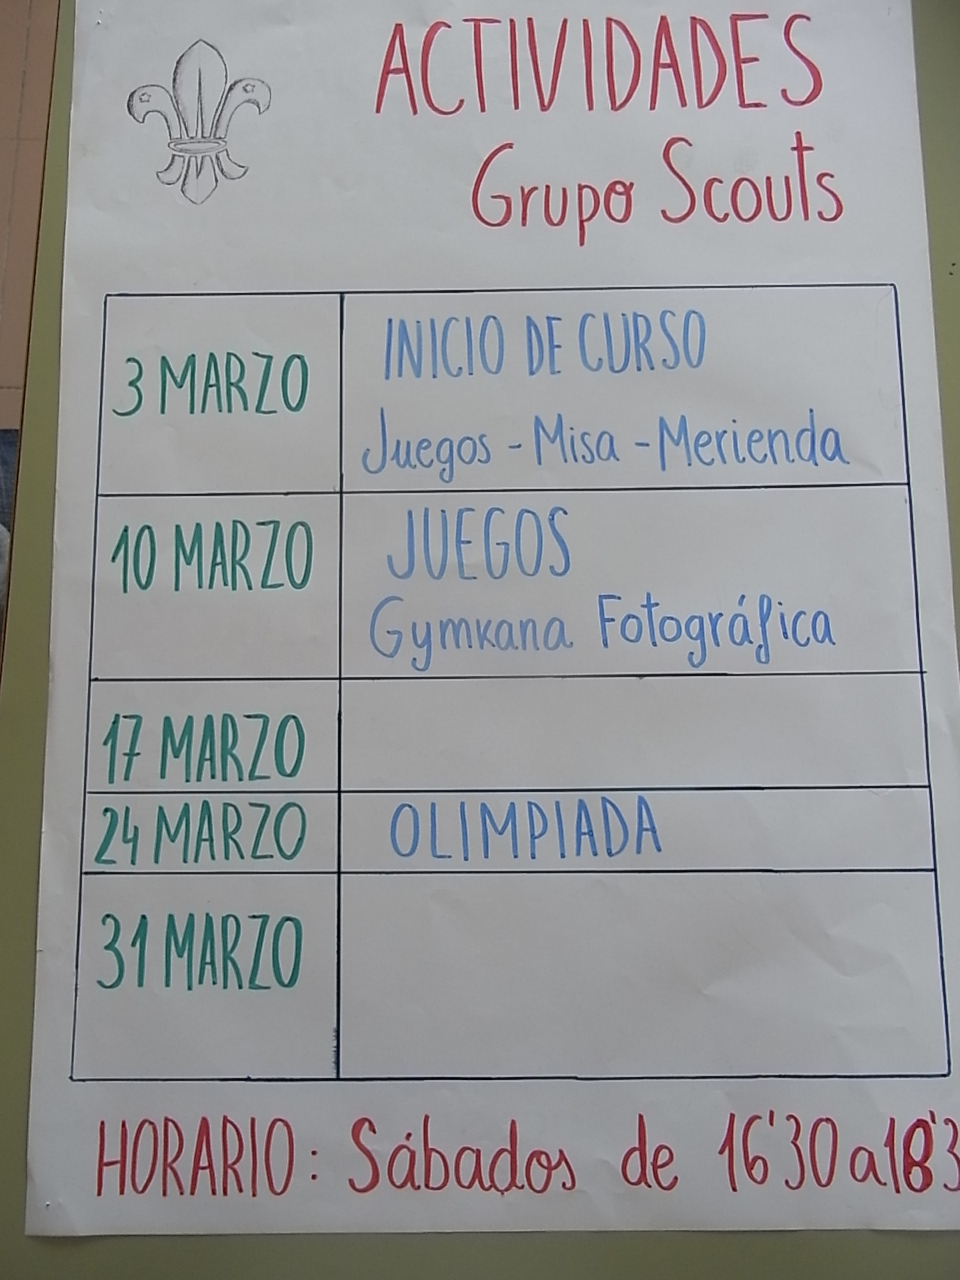 ACTIVIDADES
Grupo Scouts
3 MARZO
INICIO DE CURSO
Juegos - Misa - Merienda
10 MARZO
JUEGOS
Gymkana Fotográfica
17 MARZO
24 MARZO
OLIMPIADA
31 MARZO
HORARIO: Sábados de 16'30 a 18'3